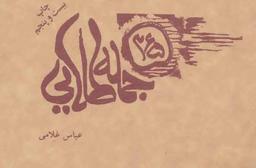 چاپ
بیست و پنجم
۲۵
جمله طلایی
عباس غلامی